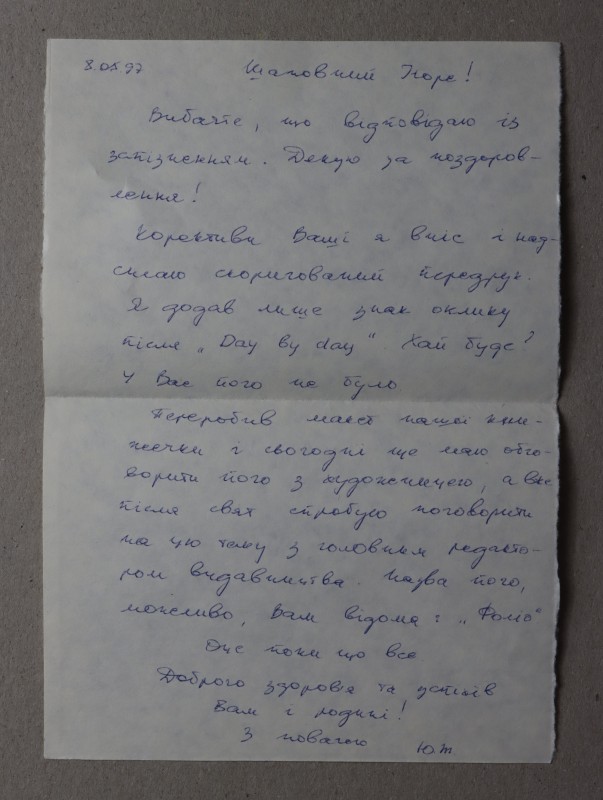 8.05.97 Шановний Ігоре!
Вибачте, що відповідаю із
запізненням. Дякую за поздоров-
лення!
Корективи Ваші я вніс і над-
силаю скоригований передрук.
Я додав лише знак оклику
після „Day by day“. Хай буде?
У Вас його не було
Переробив макет нашої кни-
жечки і сьогодні ще маю обго-
ворити його з художницею, а вже
після свят спробую поговорити
на цю тему з головним редакто-
ром видавництва. Назва його,
можливо, Вам відома: „Фоліо“
Оце поки що все
Доброго здоров'я та успіхів
Вам і родині!
З повагою Ю.Т.